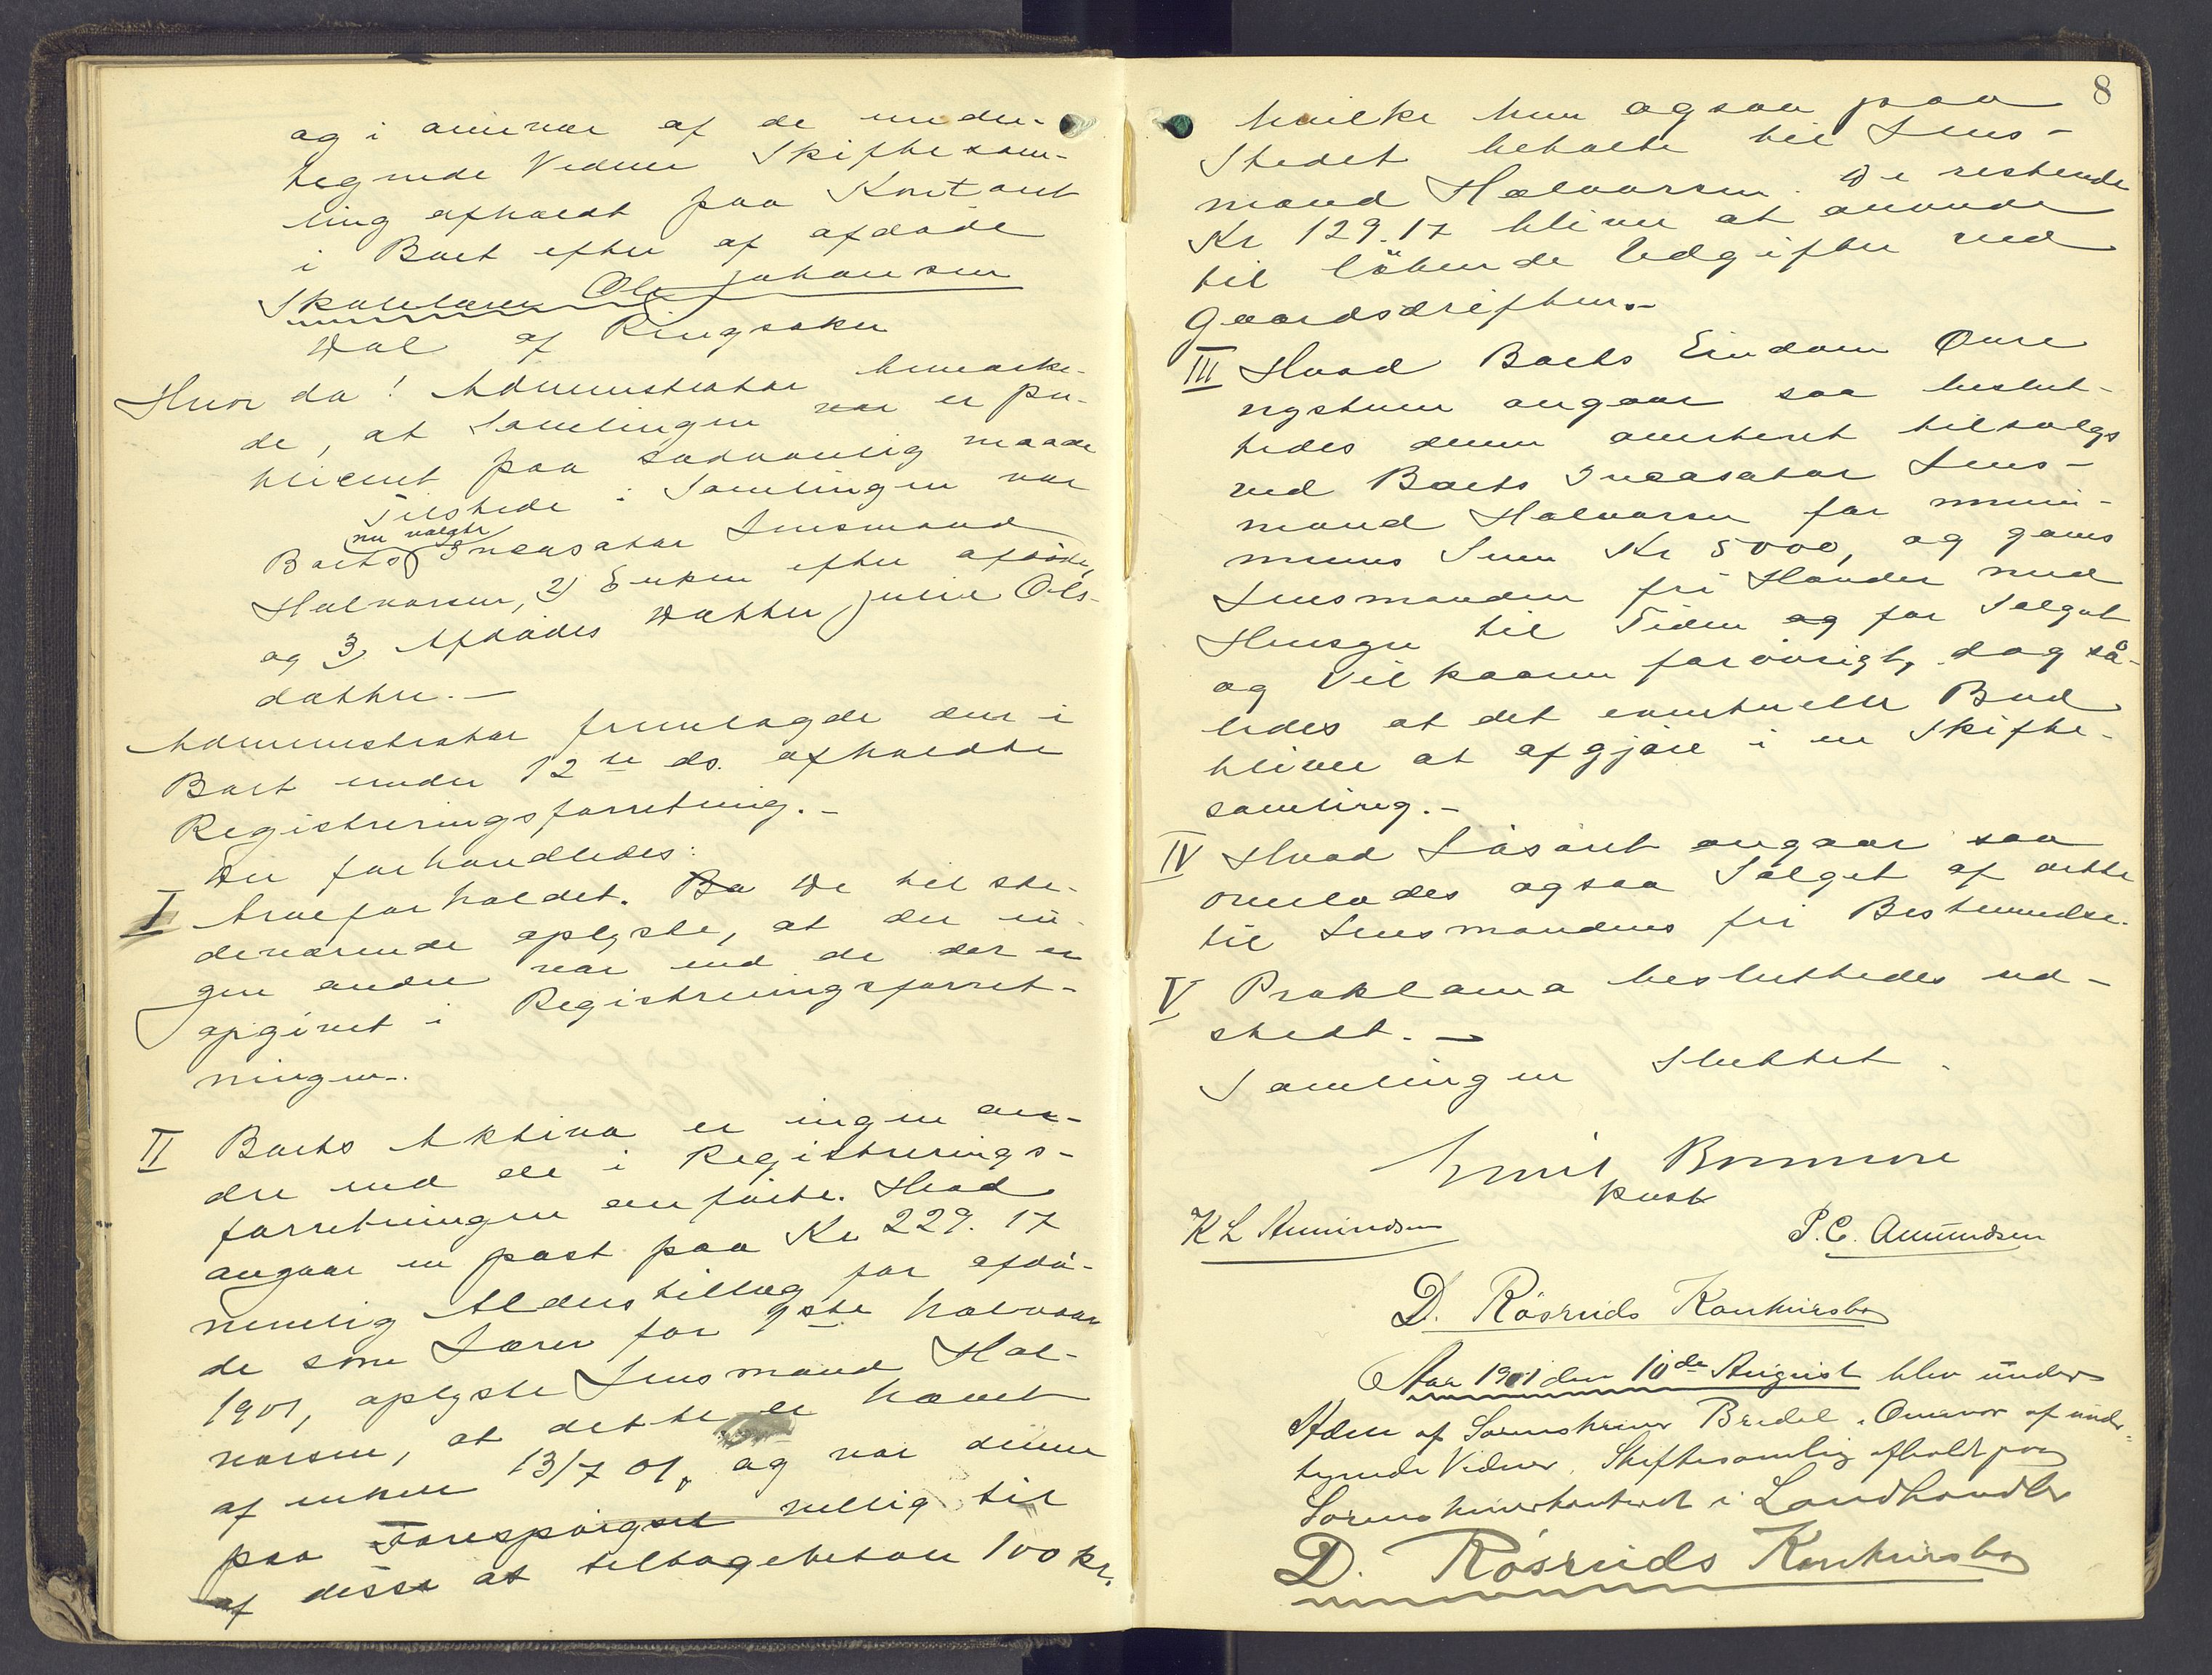 og i overvær af de under-
tegnede Vidner Skiftesam-
ling afholdt paa Kontoret
i Boet efter af afdøde
Skolelærer Ole Johansen
Dal af Ringsaker
Hvor da! Administrator bemærke-
de, at Samlingen var er pu-
bliceret paa sædvanlig maade
Tilstede i Samlingen var
Boets nu valgte Incasator Lensmand
Halvorsen, 2) Enken efter afdøde,
og 3, Afdødes Datter Julie Ols-
datter. —
Administrator fremlagde den i
Boet under 12te ds. afholdte
Registreringsforretning. —
Der forhandledes:
I Arveforholdet. Bo De til ste-
deværende oplyste, at der in-
gen andre var end de der er
opgivet i Registreringsforret-
ningen.
II Boets Aktiva er ingen an-
dre end de i Registrerings-
forretningen anførte. Hvad
angaar en post paa Kr 229.17
nemlig Alderstillæg for afdø-
de som Lærer for 1ste halvaar
1901, oplyste Lensmand Hal-
vorsen, at dette er hævet
af enken 13/7 01, og var denne
paa Forespørgsel villig til
af disse at tilbagebetale 100 kr.
8
hvilke hun ogsaa paa
Stedet betalte til Lens-
mand Halvorsen. De restende
Kr 129.17 bliver at anvende
til løbende Udgifter ved
Gaardsdriften. —
III Hvad Boets Eiendom Øvre
nystuen angaar saa beslut-
tedes denne averteret tilsalgs
ved Boets Incasator Lens-
mand Halvorsen for mini-
mums Sum Kr 5000, og gaves
Lensmanden fri Hænder med
Hensyn til Tiden og for Salget
og Vilkaarene forøvrigt, dog så-
ledes at det eventuelle Bud
bliver at afgjøre i en Skifte-
samling. —
IV Hvad Løsøret angaar saa
overlodes ogsaa Salget af dette
til Lensmandens fri Bestemmelse.
V Proklama besluttedes ud-
stedt. —
Samlingen Sluttet.
Emil
K L Amundsen
P. C. Amundsen
D. Røsruds Konkursbo
Aar 1901 den 10de August blev under
af Sorenskriver Bredel. Overvær af under-
tegnede Vidner, Skiftesamling afholdt paa
Sorenskriverkontoret i Landhandler
D. Røsruds Konkursbo